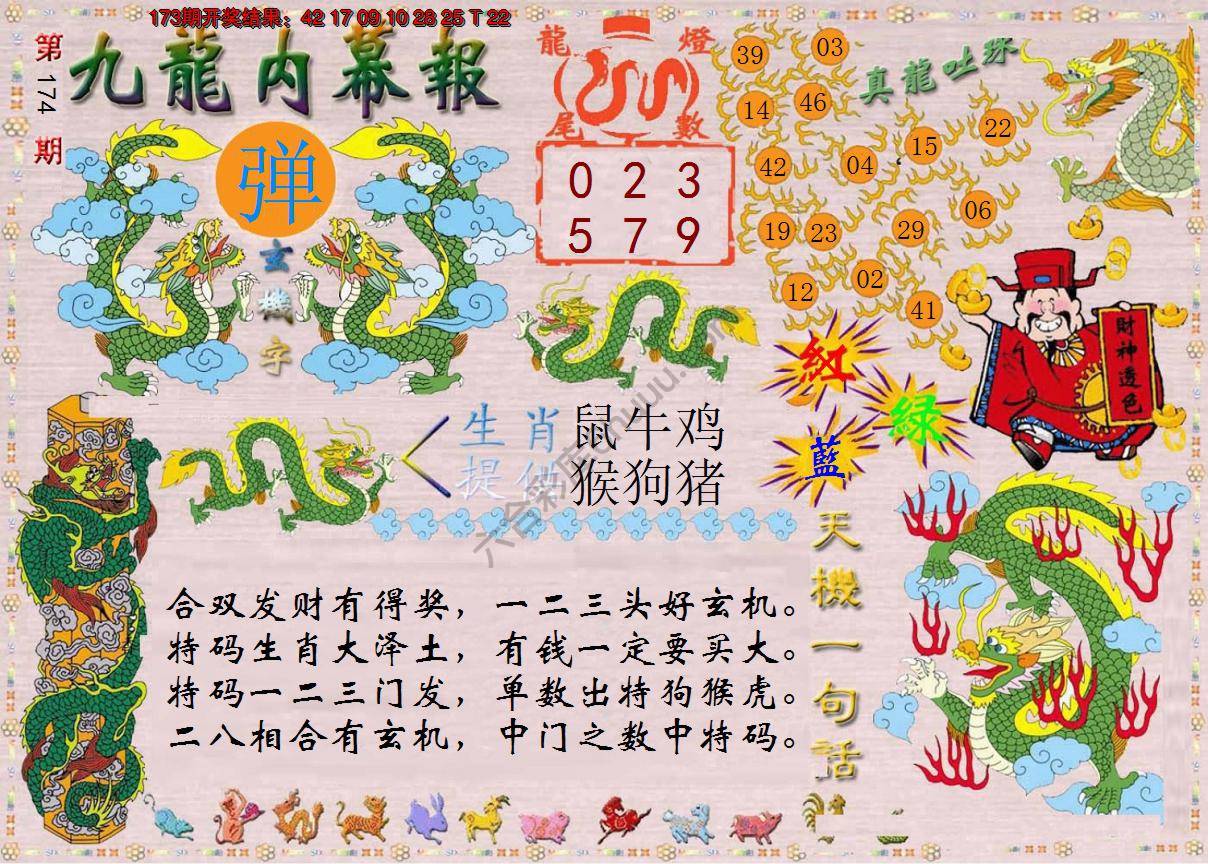 173期开奖结果：42 17 09 10 28 25 T 22
第174期
九龍内幕報
弹
玄機字
龍燈
尾數
0 2 3
5 7 9
真龍吐珠
39
03
14
46
42
04
15
22
19
23
29
06
12
02
41
財神透色
紅
綠
藍
生肖
鼠牛鸡
提供
猴狗猪
天機一句話
合双发财有得奖，一二三头好玄机。
特码生肖大泽土，有钱一定要买大。
特码一二三门发，单数出特狗猴虎。
二八相合有玄机，中门之数中特码。